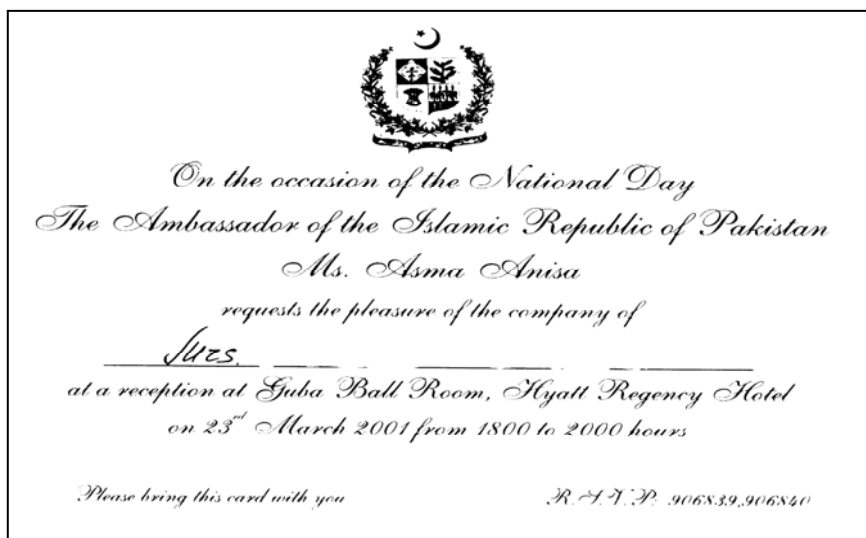 On the occasion of the National Day
The Ambassador of the Islamic Republic of Pakistan
Ms. Asma Anisa
requests the pleasure of the company of
Mrs.
at a reception at Guba Ball Room, Hyatt Regency Hotel
on 23rd March 2001 from 1800 to 2000 hours
Please bring this card with you
R.S.V.P: 906839,906840